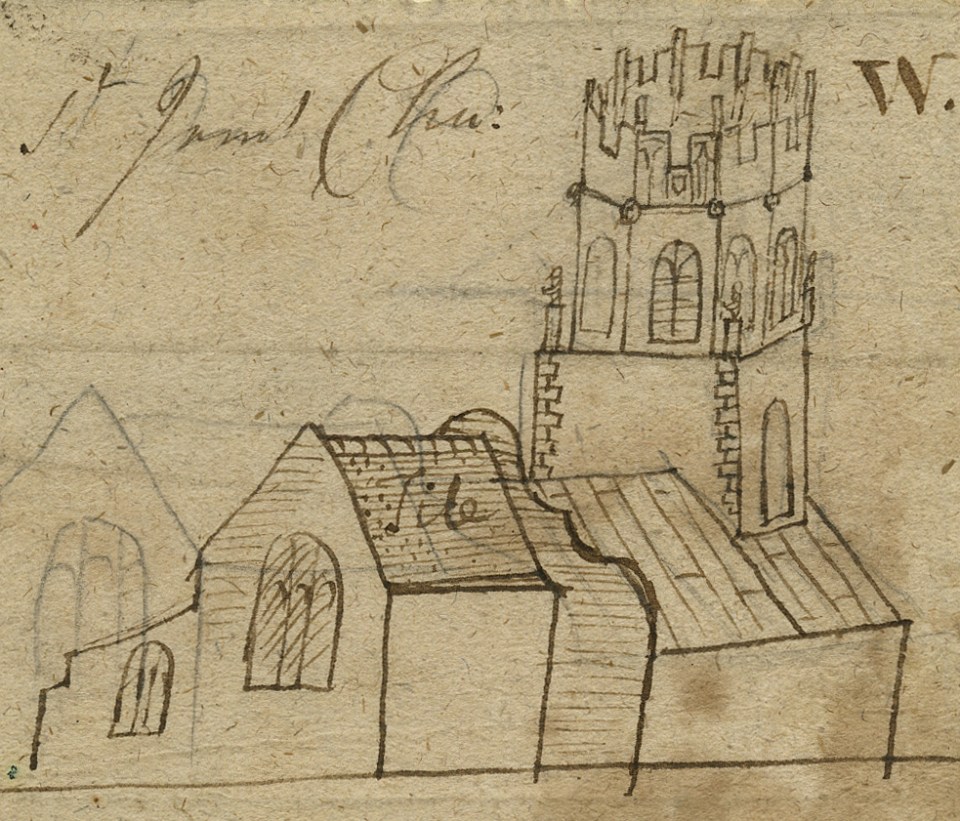 St Jemi' Chu:
W.
Tile